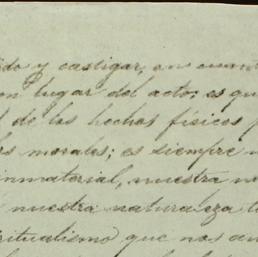 y castigar, en cuan
lugar del acto; es qu
de los hechos físicos
morales; es siempre
inmaterial, nuestra
nuestra naturaleza
ritualismo que nos an